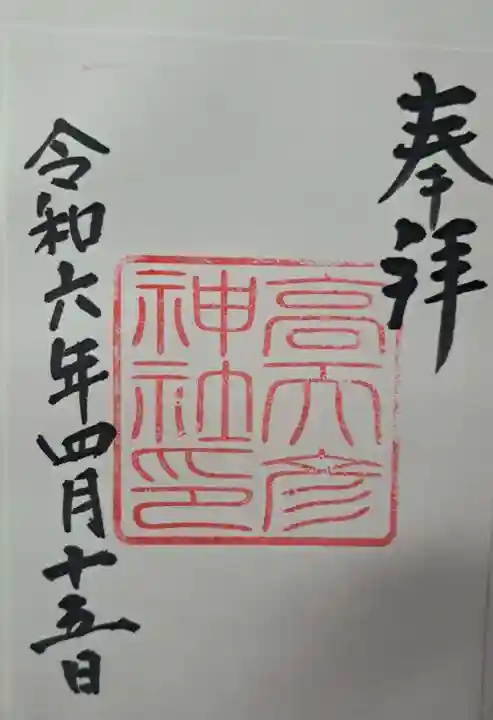 奉拝
高天彦
神社印
令和六年四月十五日